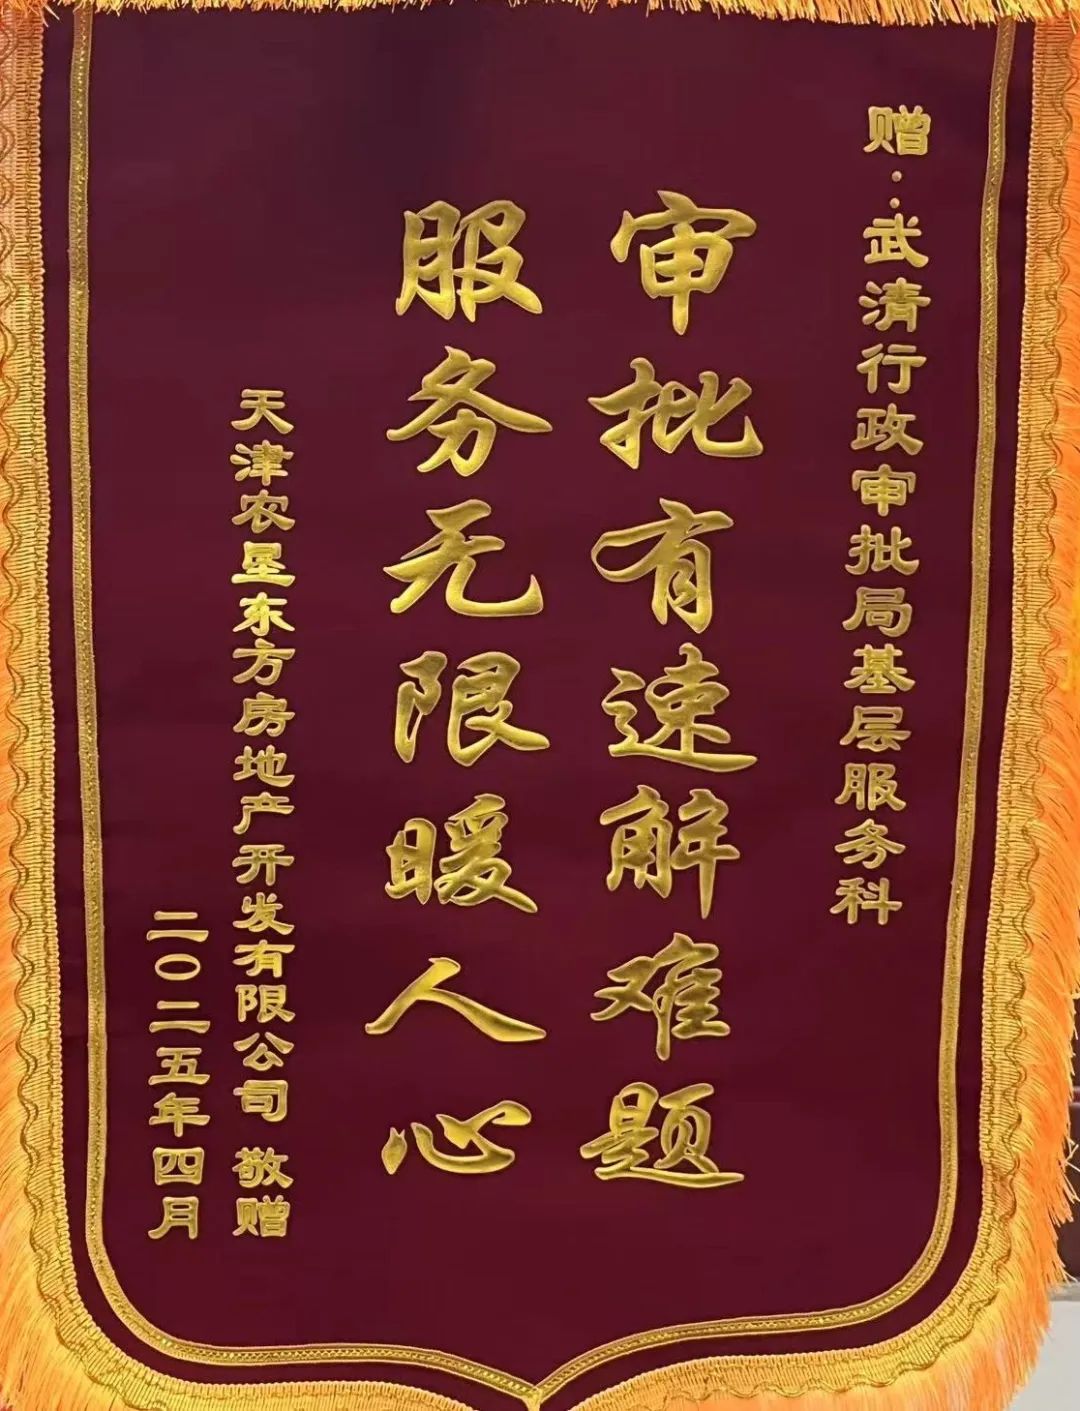 赠：武清行政审批局基层服务科
审批有速解难题
服务无限暖人心
天津农垦东方房地产开发有限公司 敬赠
二〇二五年四月